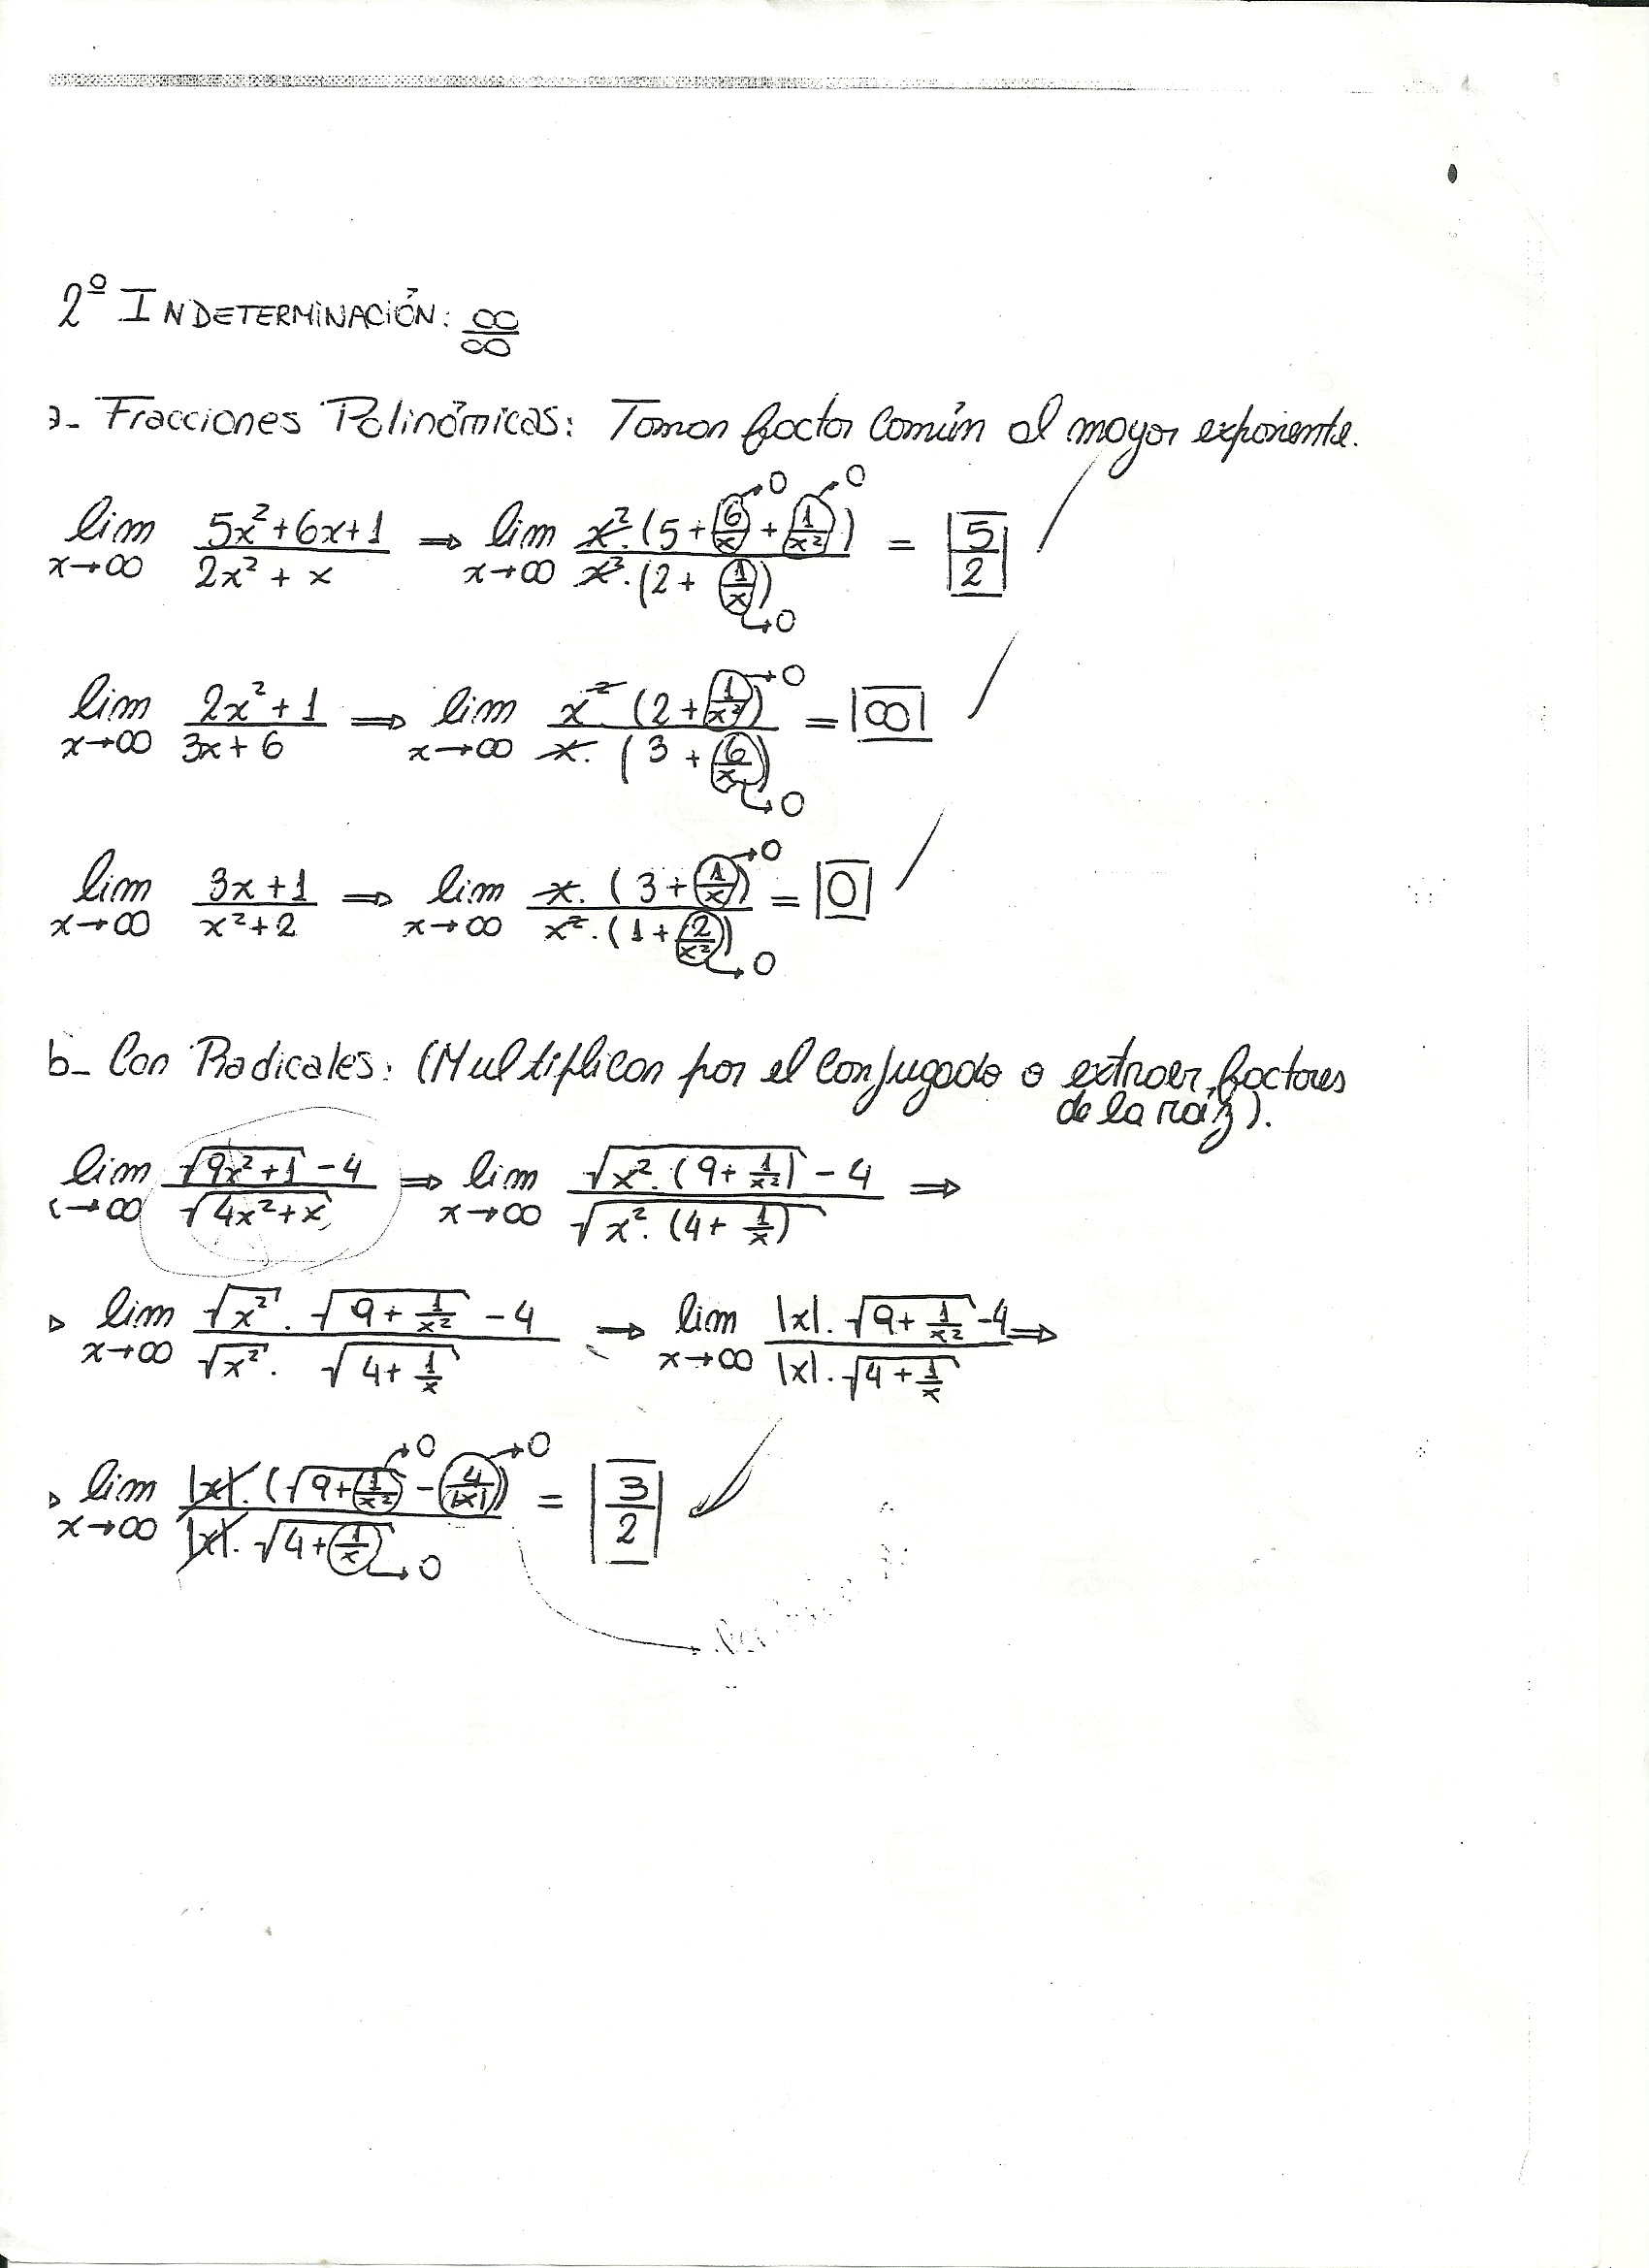 2º INDETERMINACIÓN: ∞/∞
a- Fracciones Polinómicas: Tomar factor Común al mayor exponente.
lim x→∞ (5x²+6x+1)/(2x²+x) ⇒ lim x→∞ (x².(5+6/x+1/x²))/(x².(2+1/x)) = 5/2
→0 →0 →0
lim x→∞ (2x²+1)/(3x+6) ⇒ lim x→∞ (x².(2+1/x²))/(x.(3+6/x)) = ∞
→0 →0
lim x→∞ (3x+1)/(x²+2) ⇒ lim x→∞ (x.(3+1/x))/(x².(1+2/x²)) = 0
→0 →0
b- Con Radicales: (Multiplicar por el conjugado o extraer factores
de la raíz).
lim x→∞ (√(9x²+1) -4)/√(4x²+x) ⇒ lim x→∞ (√(x².(9+1/x²)) -4)/√(x².(4+1/x)) ⇒
lim x→∞ (√x² . √(9+1/x²) -4)/(√x² . √(4+1/x)) ⇒ lim x→∞ (|x|.√(9+1/x²) -4)/(|x|.√(4+1/x)) ⇒
lim x→∞ (|x|.(√(9+1/x²) - 4/|x|))/(|x|.√(4+1/x)) = 3/2
→0 →0 →0